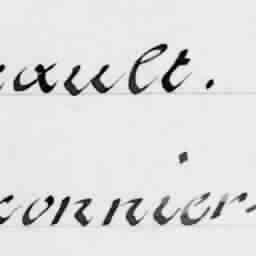 ault.
onnier-